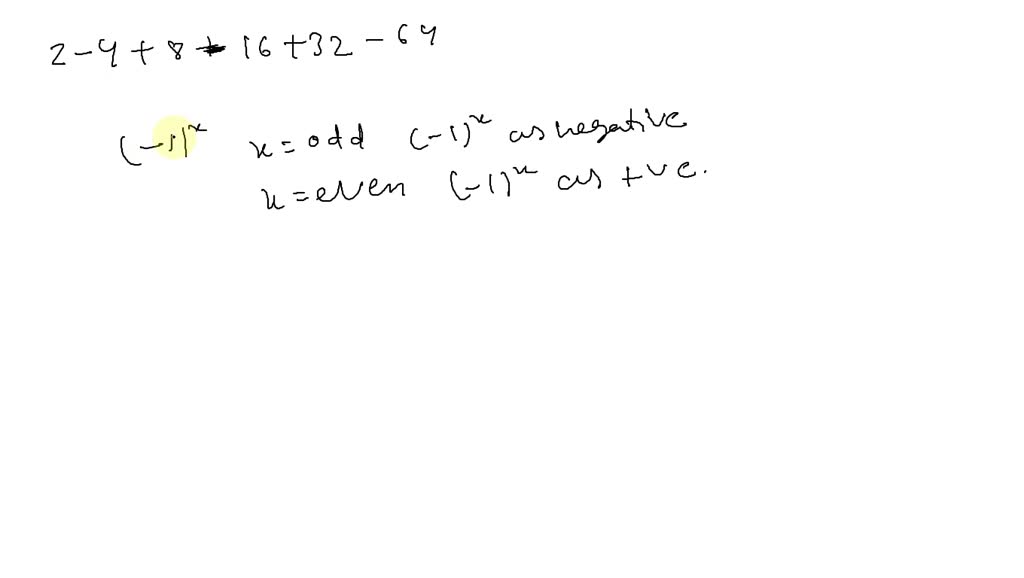 2 - 4 + 8 - 16 + 32 - 64
(-1)^x x = odd (-1)^x as negative
x = even (-1)^x as +ve.